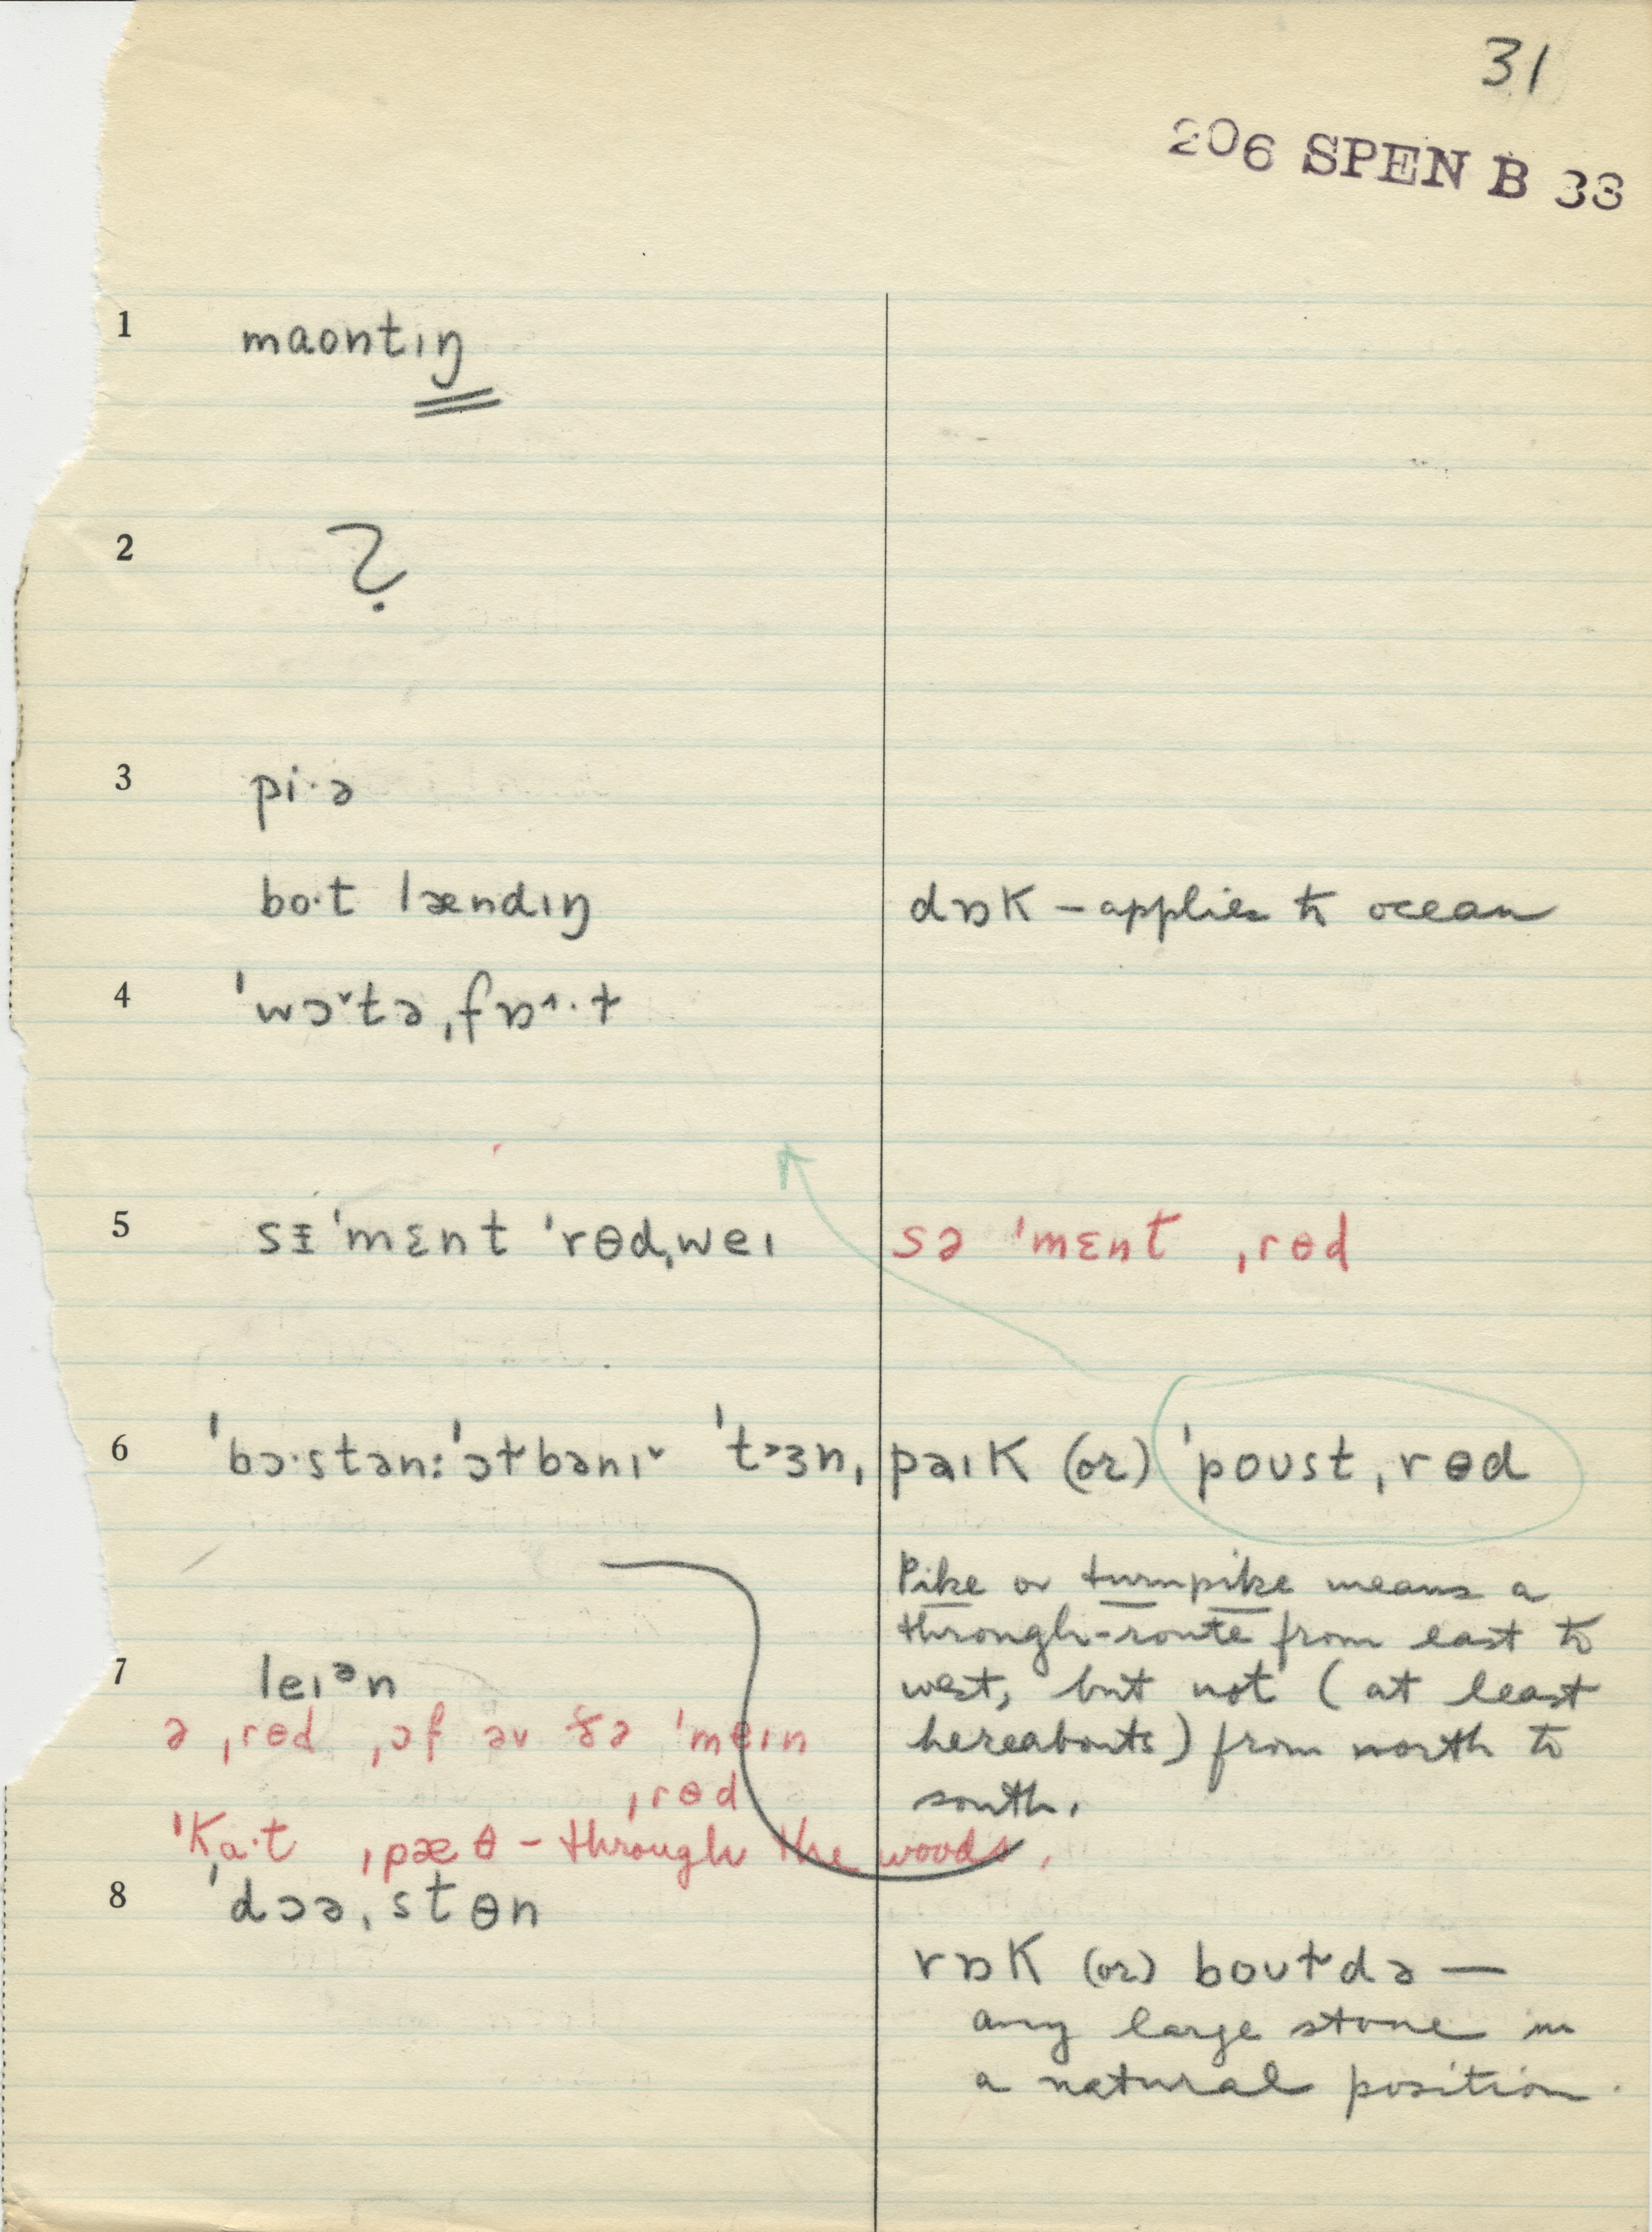 31
206 SPEN B 33
1 maontıŋ
2 ?
3 pi·ə
bo·t lændıŋ
dɒK – applies to ocean
4 ˈwɔ˅tə ˌfɒ˄·ɫ
5 sᵻˈmɛnt ˈrɵdˌweı
sə ˈmɛnt ˌrɵd
6 ˈbɔ·stən: ˈɔɫbənı˅ ˈt˃ɜnˌpaıK (or) ˈpoʊst ˌrɵd
Pike or turnpike means a
through-route from east to
west, but not (at least
hereabouts) from north to
south.
7 leıᵊn
ə ˌrɵd ˌɔf əv ðə ˈmeın
ˌrɵd
ˈKa·t ˌpæθ – through the woods.
8 ˈdɔəˌstɵn
rɒK (or) boʊɫdə —
any large stone in
a natural position.